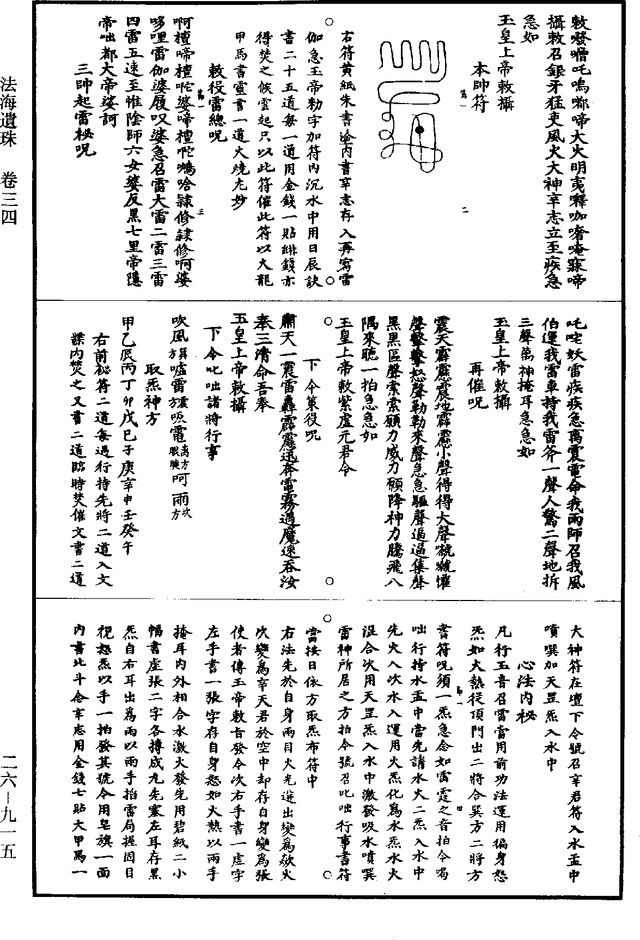 法海遺珠 卷三四
二六—九一五
大火明夷釋咖嗜唵寐啼
攝敕召銀牙猛吏風火大神辛志立至疾急
急如
玉皇上帝敕攝
本帥符
右符黃紙朱書塗內書辛志存入再寫雷
伽急玉帝勅字加符內沉水中用日辰訣
書二十五道每一道用金錢一貼緋錢亦
得焚之候雲起只以此符催此符以火龍
甲馬書靈書一道火燒尤妙
敕役雷總咒
哆哩雷伽婆履叹婆急召雷大雷二雷三雷
四雷五速至惟陰師六女婆反黑七里帝隱
帝咄都大帝娑訶
三帥起雷秘咒
吒咤妖雷疾疾急萬震電命我雨師召我風
伯運我雷車持我雷斧一聲人驚二聲地拆
三聲萬神掩耳急急如
玉皇上帝敕攝
再催咒
震天霹靂震地霹靂小聲得得大聲
黑黑區聲索索願力威力願降神力騰飛八
隅來聽一拍急急如
玉皇上帝敕紫虛元君令
下令策役咒
肅天一震雷轟霹靂迅奔電霧過魔速吞汝
奉三清命吾奉
玉皇上帝敕攝
下令叱咄諸將行事
吹風方巽噓雷方震吸電离方呵雨方坎
取炁神方
甲乙辰丙丁卯戊己子庚辛申壬癸午
右前祕符二道每遇行持先將二道入文
牒內焚之又書二道臨時焚催文書二道
大神符在壇下令號召辛君符入水盂中
噴噀加天罡炁入水中
心法內秘
凡行玉音召雷當用前功法運用徧身怒
炁如火熱從頂門出二將合巽方二將方
書符咒須一炁急念如雷霆之音拍令喝
咄行持水盂中當先請水火二炁入水中
先火入次水入運用火炁化為水炁水火
混合次用天罡炁入水中激發吸水噴噀
雷神所居之方拍令號召叱咄行事書符
當按日依方取炁布符中
右法先於自身兩目火光迸出變為欻火
次變為辛天君於空中却存自身變為張
使者傳玉帝敕旨發令次右手書一虛字
左手書一張字存自身怒如火熱以兩手
掩耳內外相合水激火發先用碧紙二小
幅書虛張二字各摶成九先塞左耳存黑
炁自右耳出為雨以兩手掐雷局握固目
視怒炁以手一拍發其號令用皂旗一面
內書北斗念辛志用金錢七貼大甲馬一